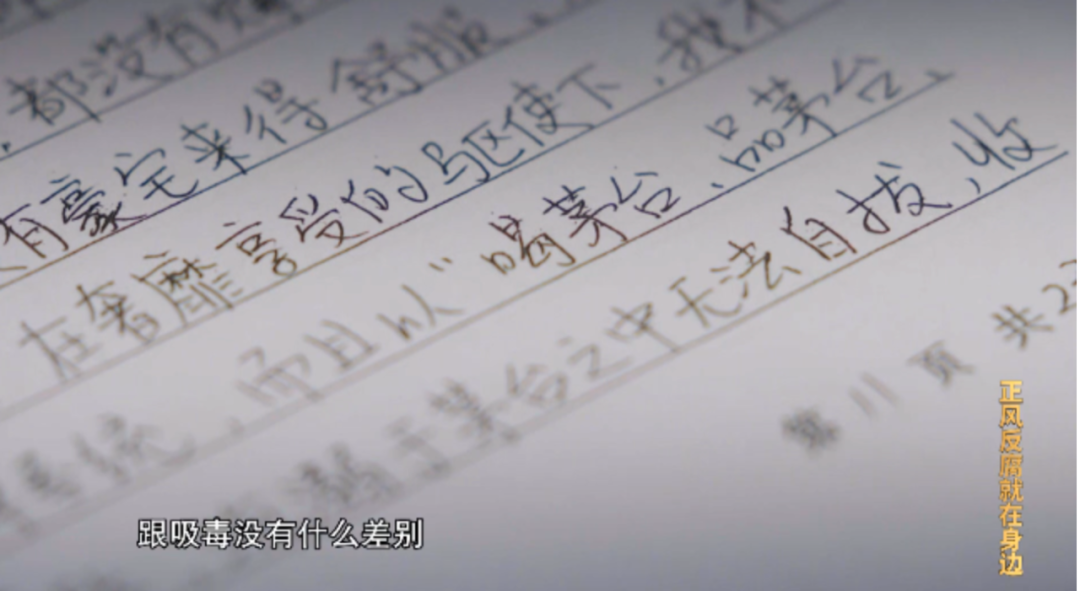 都没有
有豪宅来得舒服
在奢靡享受的驱使下,我不
,而且以“喝茅台、品茅台、
溺于茅台之中无法自拔,收
第11页 共2
跟吸毒没有什么差别
正风反腐就在身边